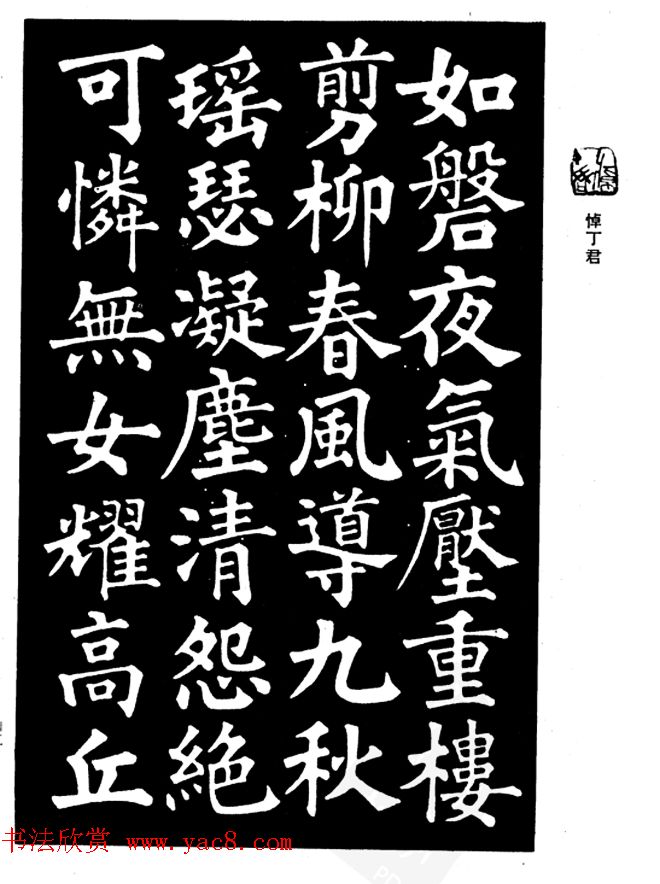 悼丁君
如磐夜氣壓重樓
剪柳春風導九秋
瑶瑟凝塵清怨絶
可憐無女耀高丘
书法欣赏 www.yac8.com